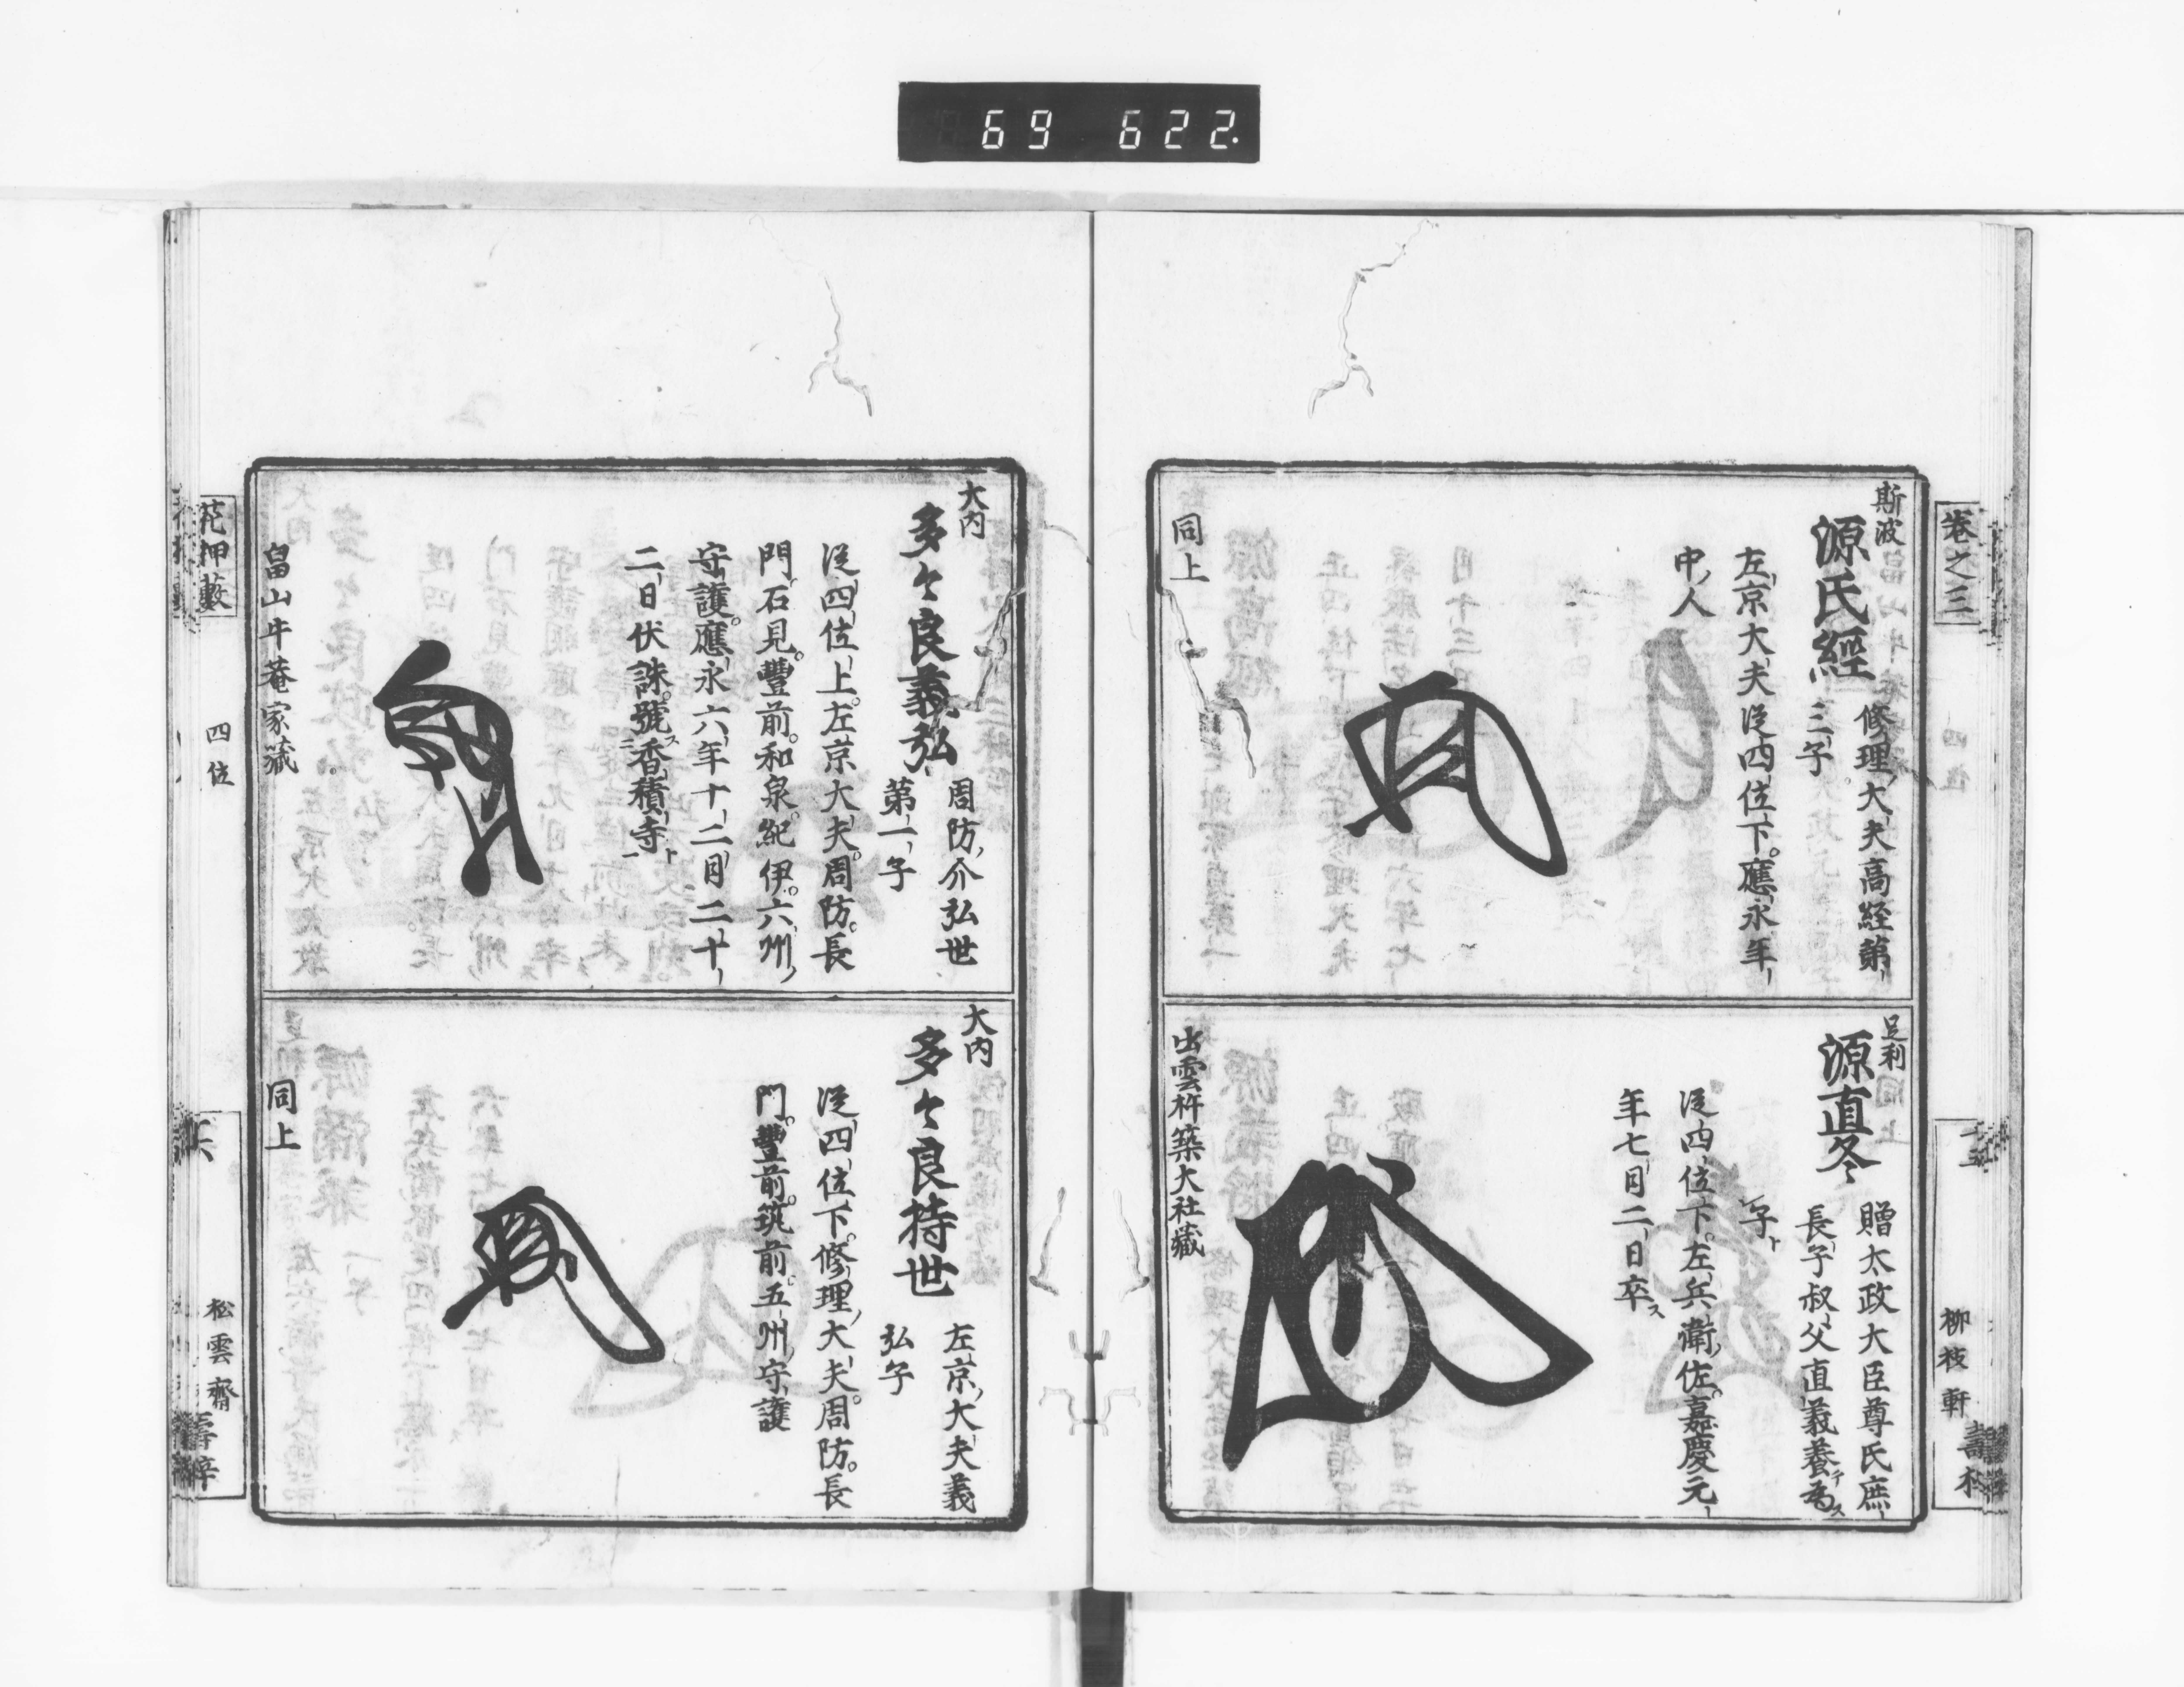 69 622.
卷之三
柳枝軒
斯波
源氏經
修理大夫高経第
三子
左京大夫從四位下應永年
中人
同上
足利
源直冬
贈太政大臣尊氏庶
長子叔父直義養テ為ス
子ト
從四位下左兵衛佐嘉慶元
年七月二日卒ス
出雲杵築大社藏
大内
多々良義弘
周防介弘世
第一子
從四位上。左京大夫。周防。長
門。石見。豐前。和泉。紀伊。六州
守護。應永六年十二月二十
二日伏誅ス號ニ香積寺ト
畠山牛菴家藏
大内
多々良持世
左京大夫義
弘子
從四位下。修理大夫。周防。長
門。豐前。筑前。五州守護
同上
花押藪
四位
松雲齋